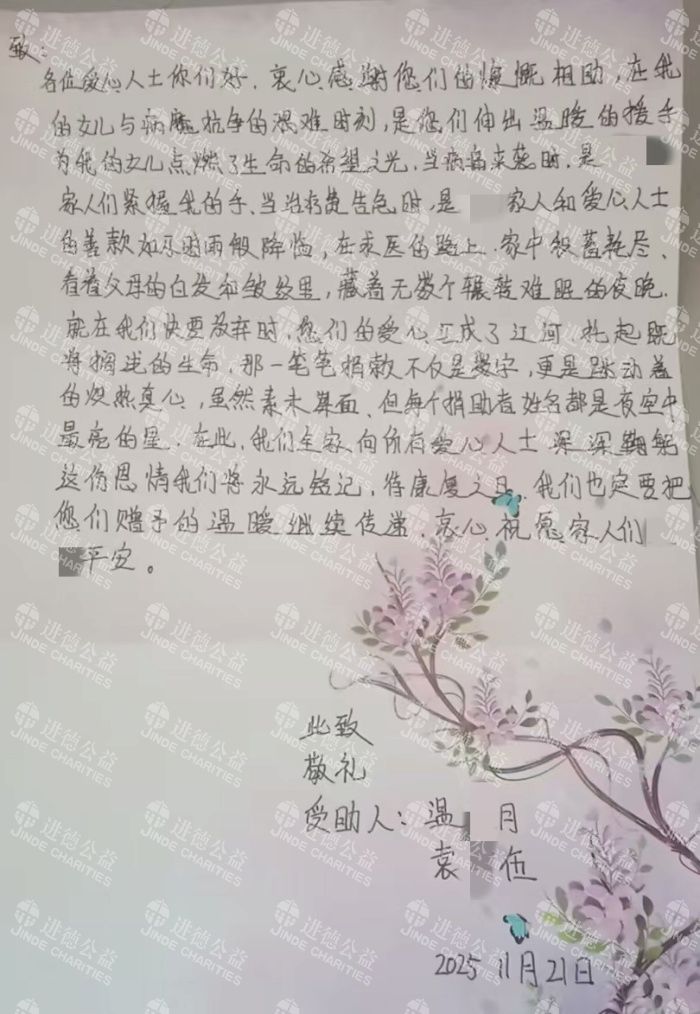 致：
各位爱心人士你们好．衷心感谢您们的慷慨相助，在我
的女儿与病魔抗争的艰难时刻，是您们伸出温暖的援手
为我的女儿点燃了生命的希望之光，当病毒来袭时．是
家人们紧握我的手、当治疗费告急时，是 家人和爱心人士
的善款如及时雨般降临，在求医的路上．家中积蓄耗尽、
看着父母的白发和皱纹里，藏着无数个辗转难眠的夜晚．
就在我们快要放弃时，您们的爱心汇成了江河．托起既
将搁浅的生命，那一笔笔捐款不仅是数字，更是跳动着
的炽热真心，虽然素未谋面、但每个捐助者姓名都是夜空中
最亮的星．在此，我们全家向所有爱心人士 深深鞠躬
这份恩情我们将永远铭记，待康复之日．我们也定要把
您们赠予的温暖继续传递、衷心祝愿家人们
平安。
此致
敬礼
受助人：温 月
袁 伍
2025 11月21日
进德公益
JINDE CHARITIES